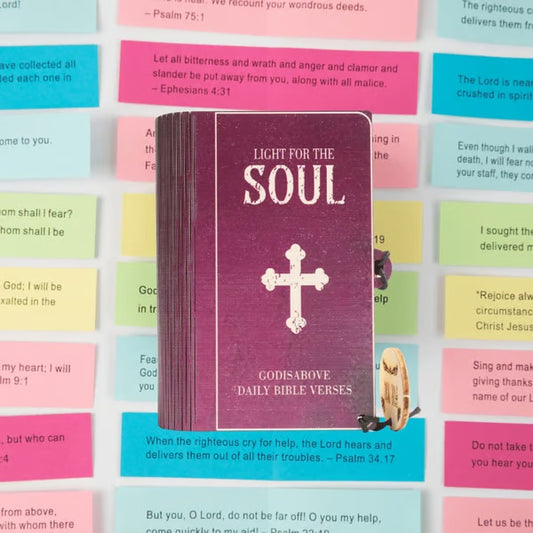 Lord!
have collected all
led each one in
ome to you.
hom shall I fear?
hom shall I be
God; I will be
exalted in the
my heart; I will
lm 9:1
, but who can
:4
from above,
with whom there
is near. We recount your wondrous deeds.
– Psalm 75:1
Let all bitterness and wrath and anger and clamor and
slander be put away from you, along with all malice.
– Ephesians 4:31
ning in
the
19
God
in tr
help
Fea
God
you
LIGHT FOR THE
SOUL
GODISAROVE
DAILY BIBLE VERSES
When the righteous cry for help, the Lord hears and
delivers them out of all their troubles. – Psalm 34.17
But you, O Lord, do not be far off! O you my help,
come quickly to my aid! – Psalm 22:19
The righteous c
delivers them fr
The Lord is near
crushed in spirit
Even though I wal
death, I will fear no
your staff, they con
I sought the
delivered m
"Rejoice alw
circumstanc
Christ Jesus
Sing and mak
giving thanks
name of our L
Do not take t
you hear you
Let us be th